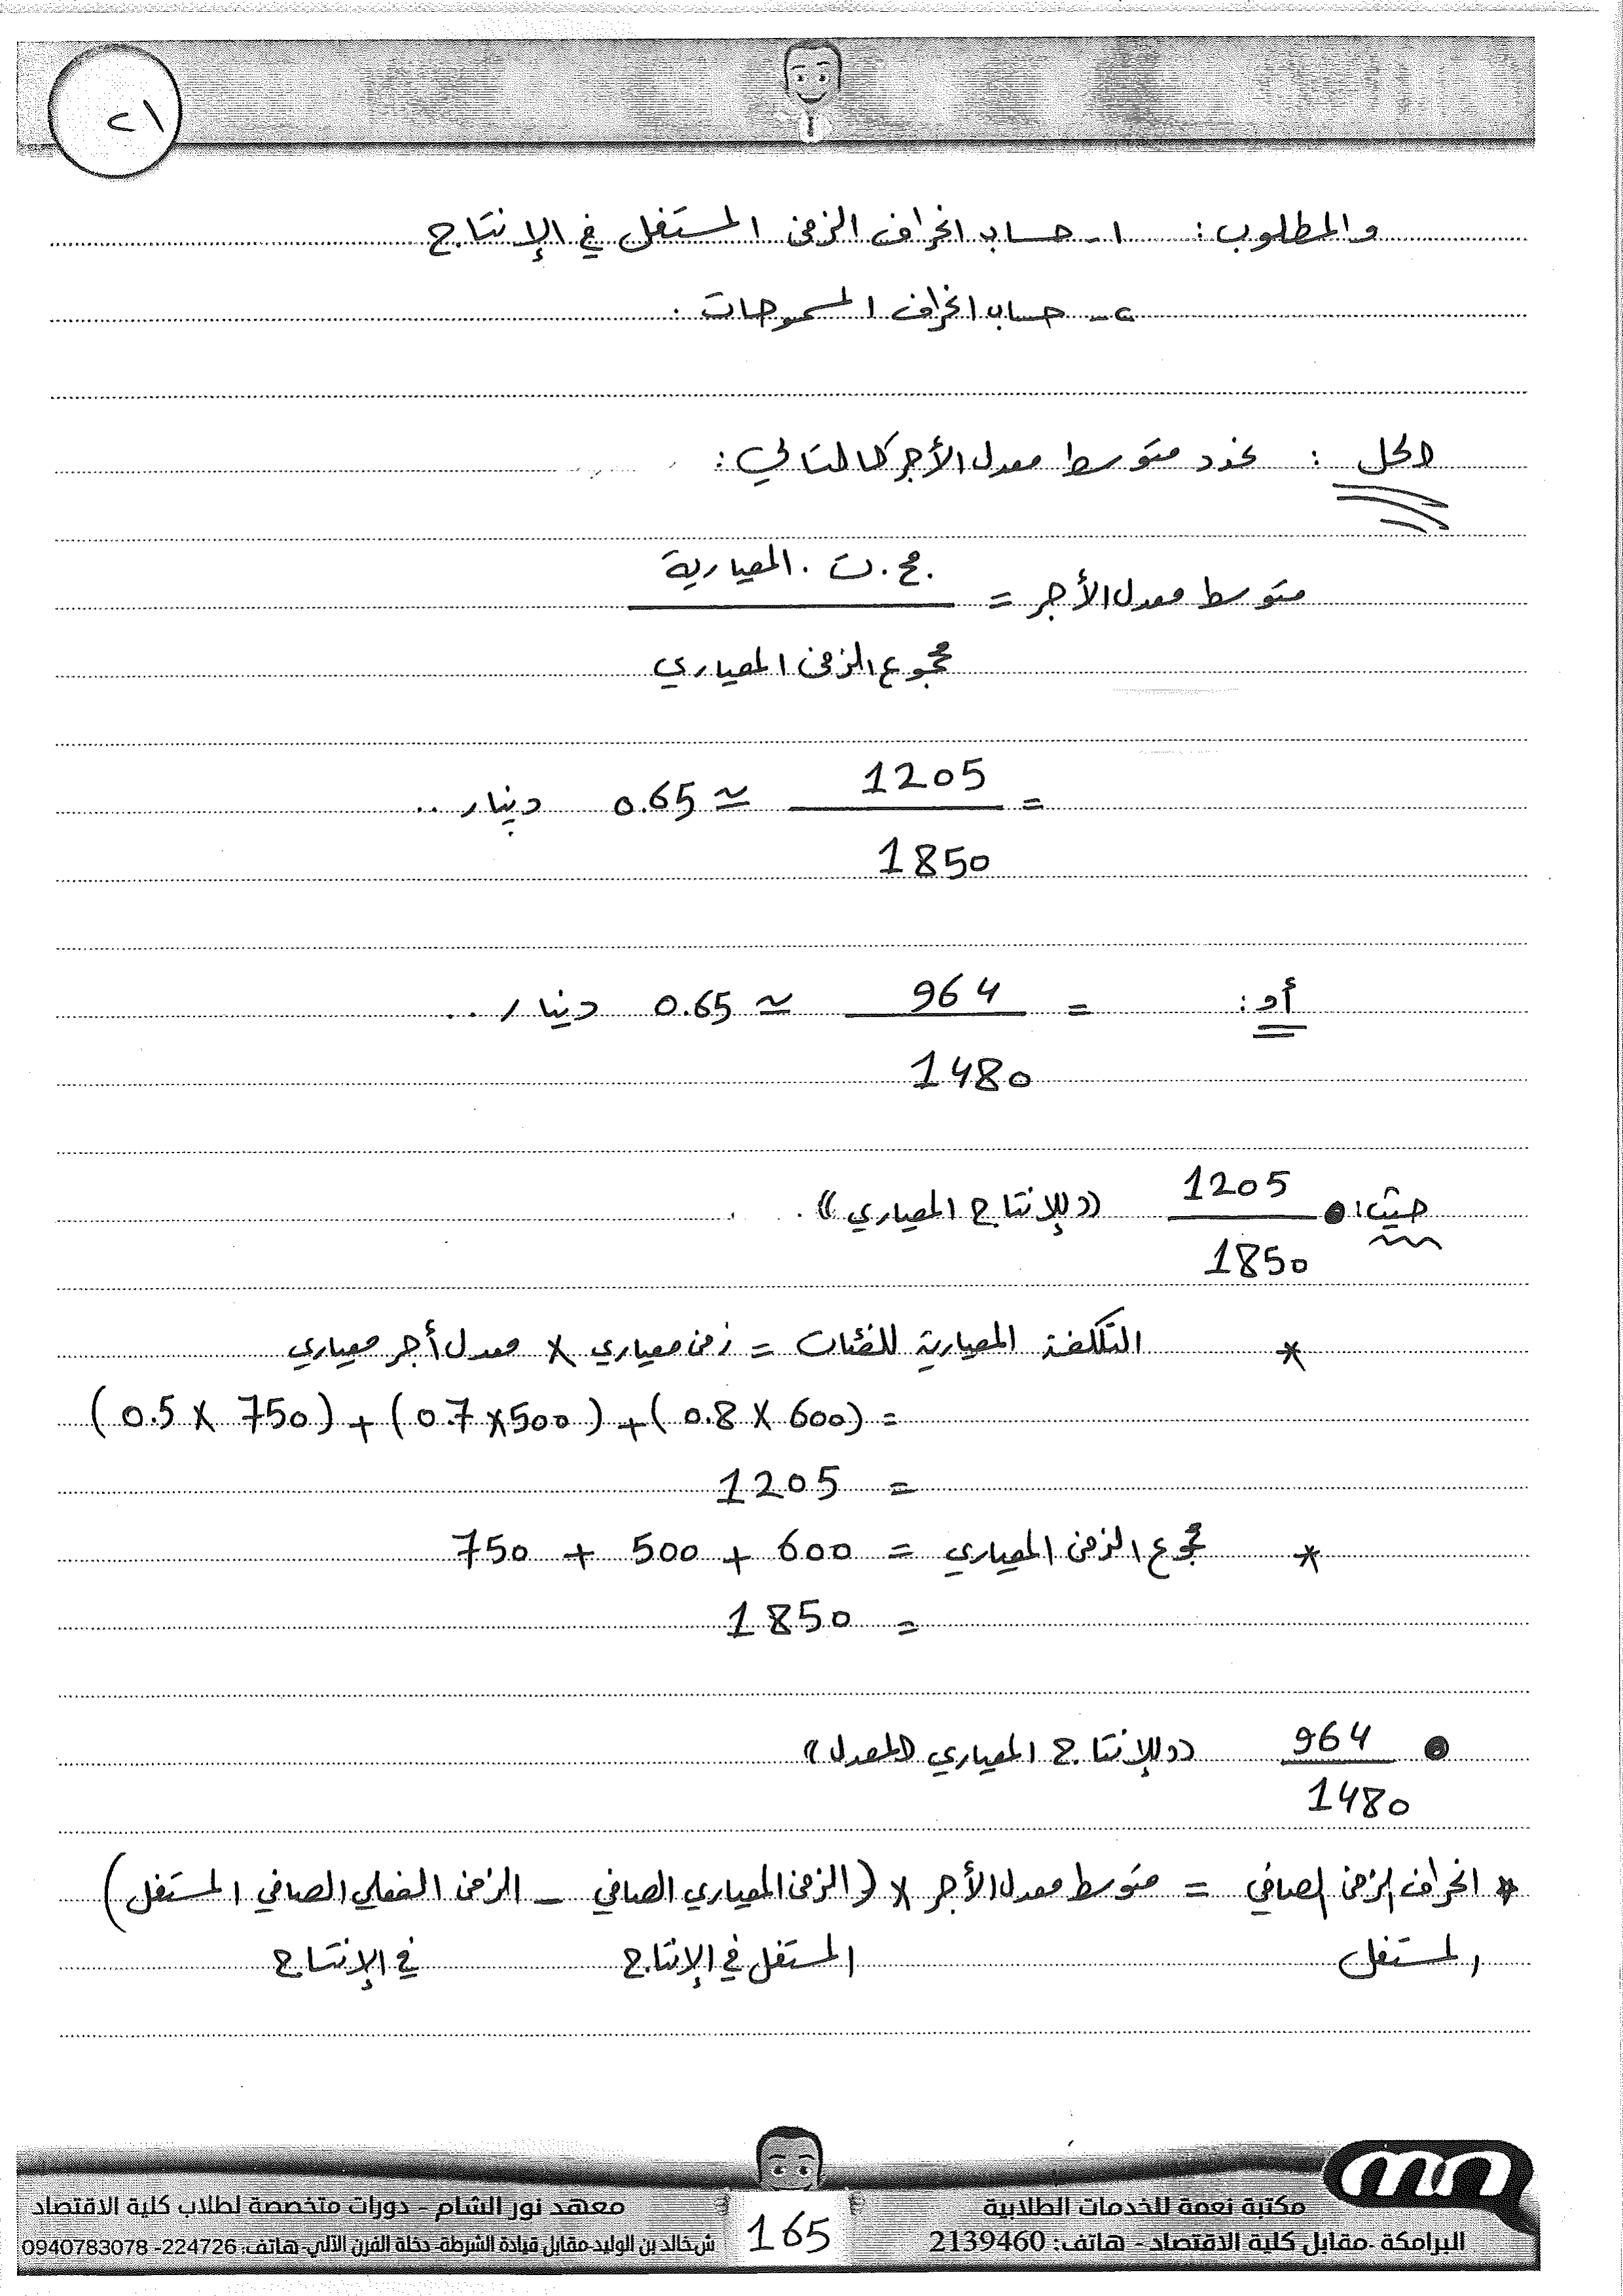 ٢١
والمطلوب: ١- حساب انحراف الزمن المستغل في الإنتاج
٢- حساب انحراف المسموحات.
الحل: نحدد متوسط معدل الأجر كالتالي:
متوسط معدل الأجر = مج.ت. المعيارية
مجموع الزمن المعياري
= 1205 ≃ 0.65 دينار..
1850
أو: = 964 ≃ 0.65 دينار..
1480
حيث: • 1205 ((للإنتاج المعياري)).
1850
* التكلفة المعيارية للفئات = زمن معياري × معدل أجر معياري
= (0.8 × 600) + (0.7 × 500) + (0.5 × 750)
= 1205
* مجموع الزمن المعياري = 600 + 500 + 750
= 1850
• 964 ((للإنتاج المعياري المعدل))
1480
* انحراف الزمن الصافي = متوسط معدل الأجر × (الزمن المعياري الصافي - الزمن الفعلي الصافي المستغل)
المستغل المستغل في الإنتاج في الإنتاج
مكتبة نعمة للخدمات الطلابية
البرامكة - مقابل كلية الاقتصاد - هاتف: 2139460
165
معهد نور الشام - دورات متخصصة لطلاب كلية الاقتصاد
ش خالد بن الوليد-مقابل قيادة الشرطة-دخلة الفرن الآلي-هاتف: 224726- 0940783078